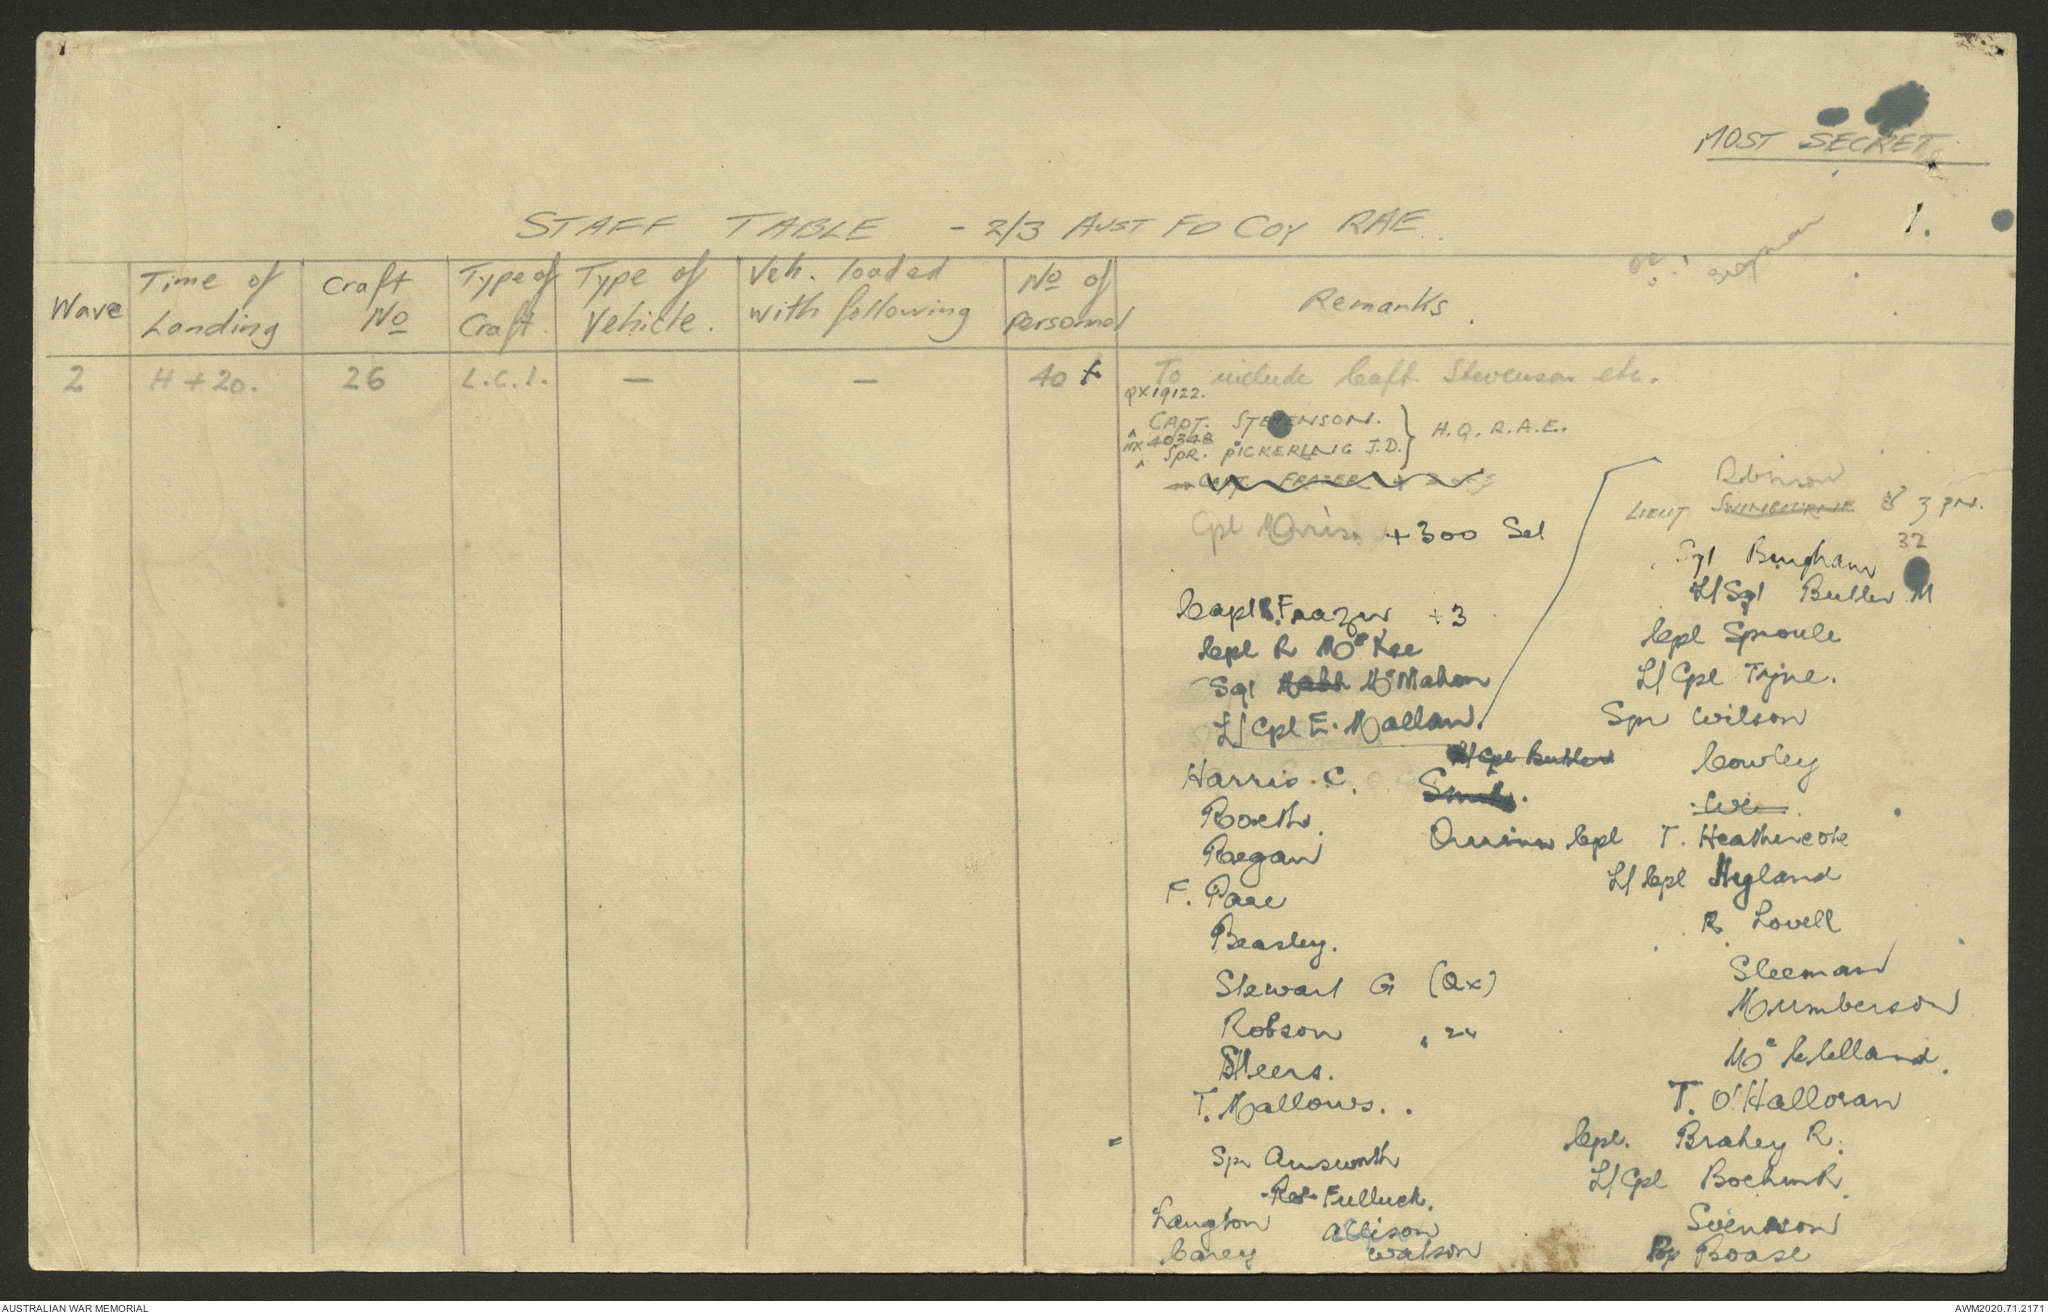 MOST SECRET
1.
STAFF TABLE - 2/3 AUST FD COY RAE.
Wave
Time of Landing
Craft No
Type of Craft.
Type of Vehicle.
Veh. loaded with following
No of personnel
Remarks.
2
H + 20.
26
L.C.I.
—
—
40 +
To include Capt. Stevenson etc.
QX19122.
CAPT. STEVENSON.
NX 40348
SPR. PICKERING J.D.
H.Q. R.A.E.
CAPT. FRAZER +
Cpl Morris + 300 Set
Capt Frazer + 3
Cpl R McKee
Sgt McMahon
L/Cpl E. Mallan.
L/Cpl Butler
Harris C.
Smith.
Rooth.
Regan
F. Pace
Beasley.
Stewart G (QX)
Robson
Steers.
T. Mallows..
Spr Ainsworth
Fulluck.
Langton
Allison
Carey
Watson
Robinson
LIEUT SWINBOURNE & 3 PN.
32
Sgt Bingham
L/Sgt Butler M
Cpl Sproule
L/Cpl Tyne.
Spr Wilson
Cowley
Wi
Cpl T. Heathercote
L/Cpl Hyland
R. Lovell
Sleeman
Mumberson
McClelland.
T. O'Halloran
Cpl. Brahey R.
L/Cpl Boehm R.
Svenson
Boase
AUSTRALIAN WAR MEMORIAL
AWM2020.71.2171